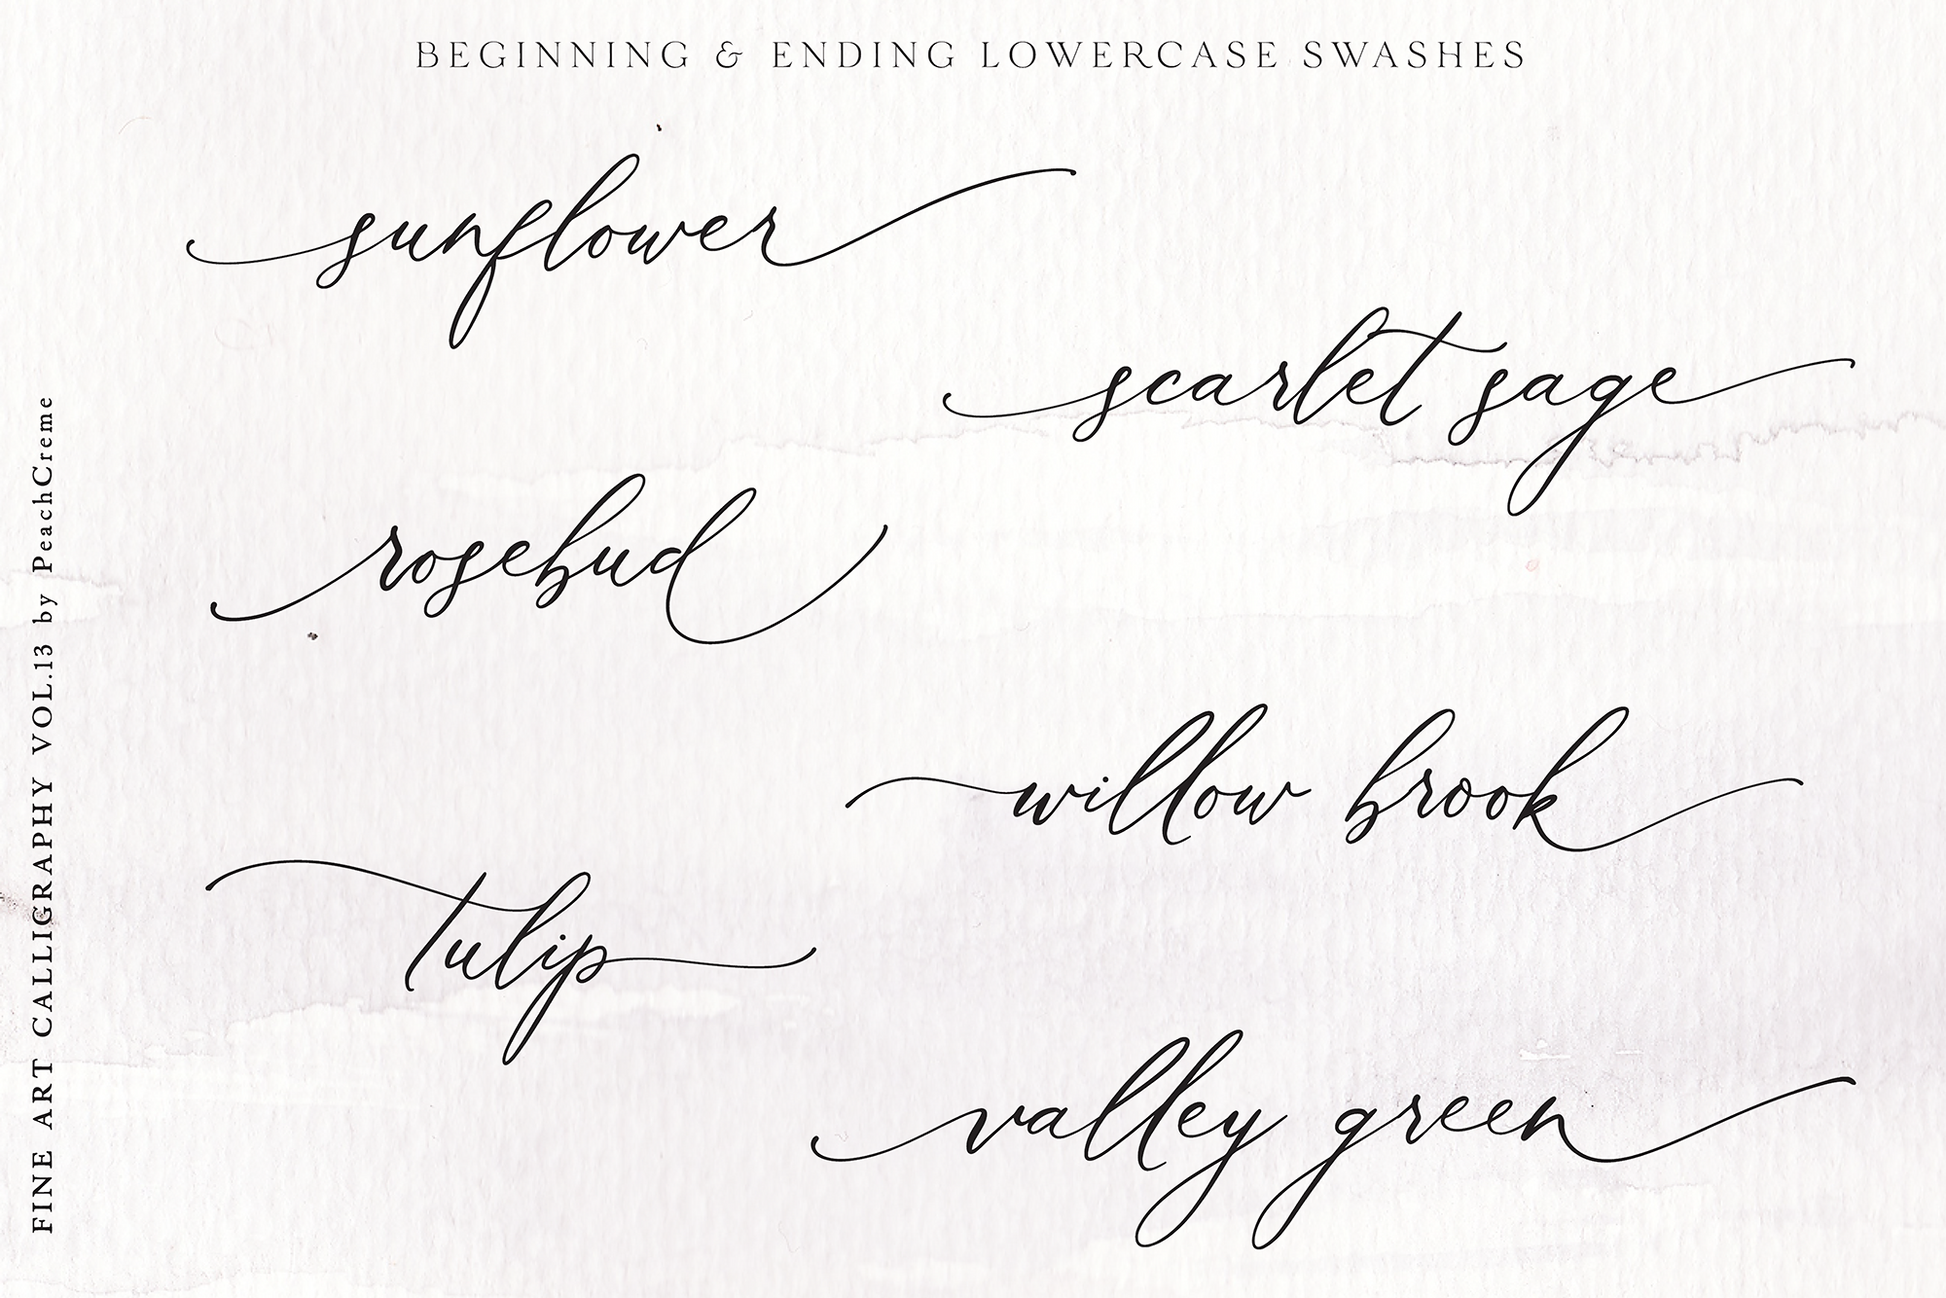 BEGINNING & ENDING LOWERCASE SWASHES
sunflower
scarlet sage
rosebud
willow brook
tulip
valley green
FINE ART CALLIGRAPHY VOL.13 by PeachCreme